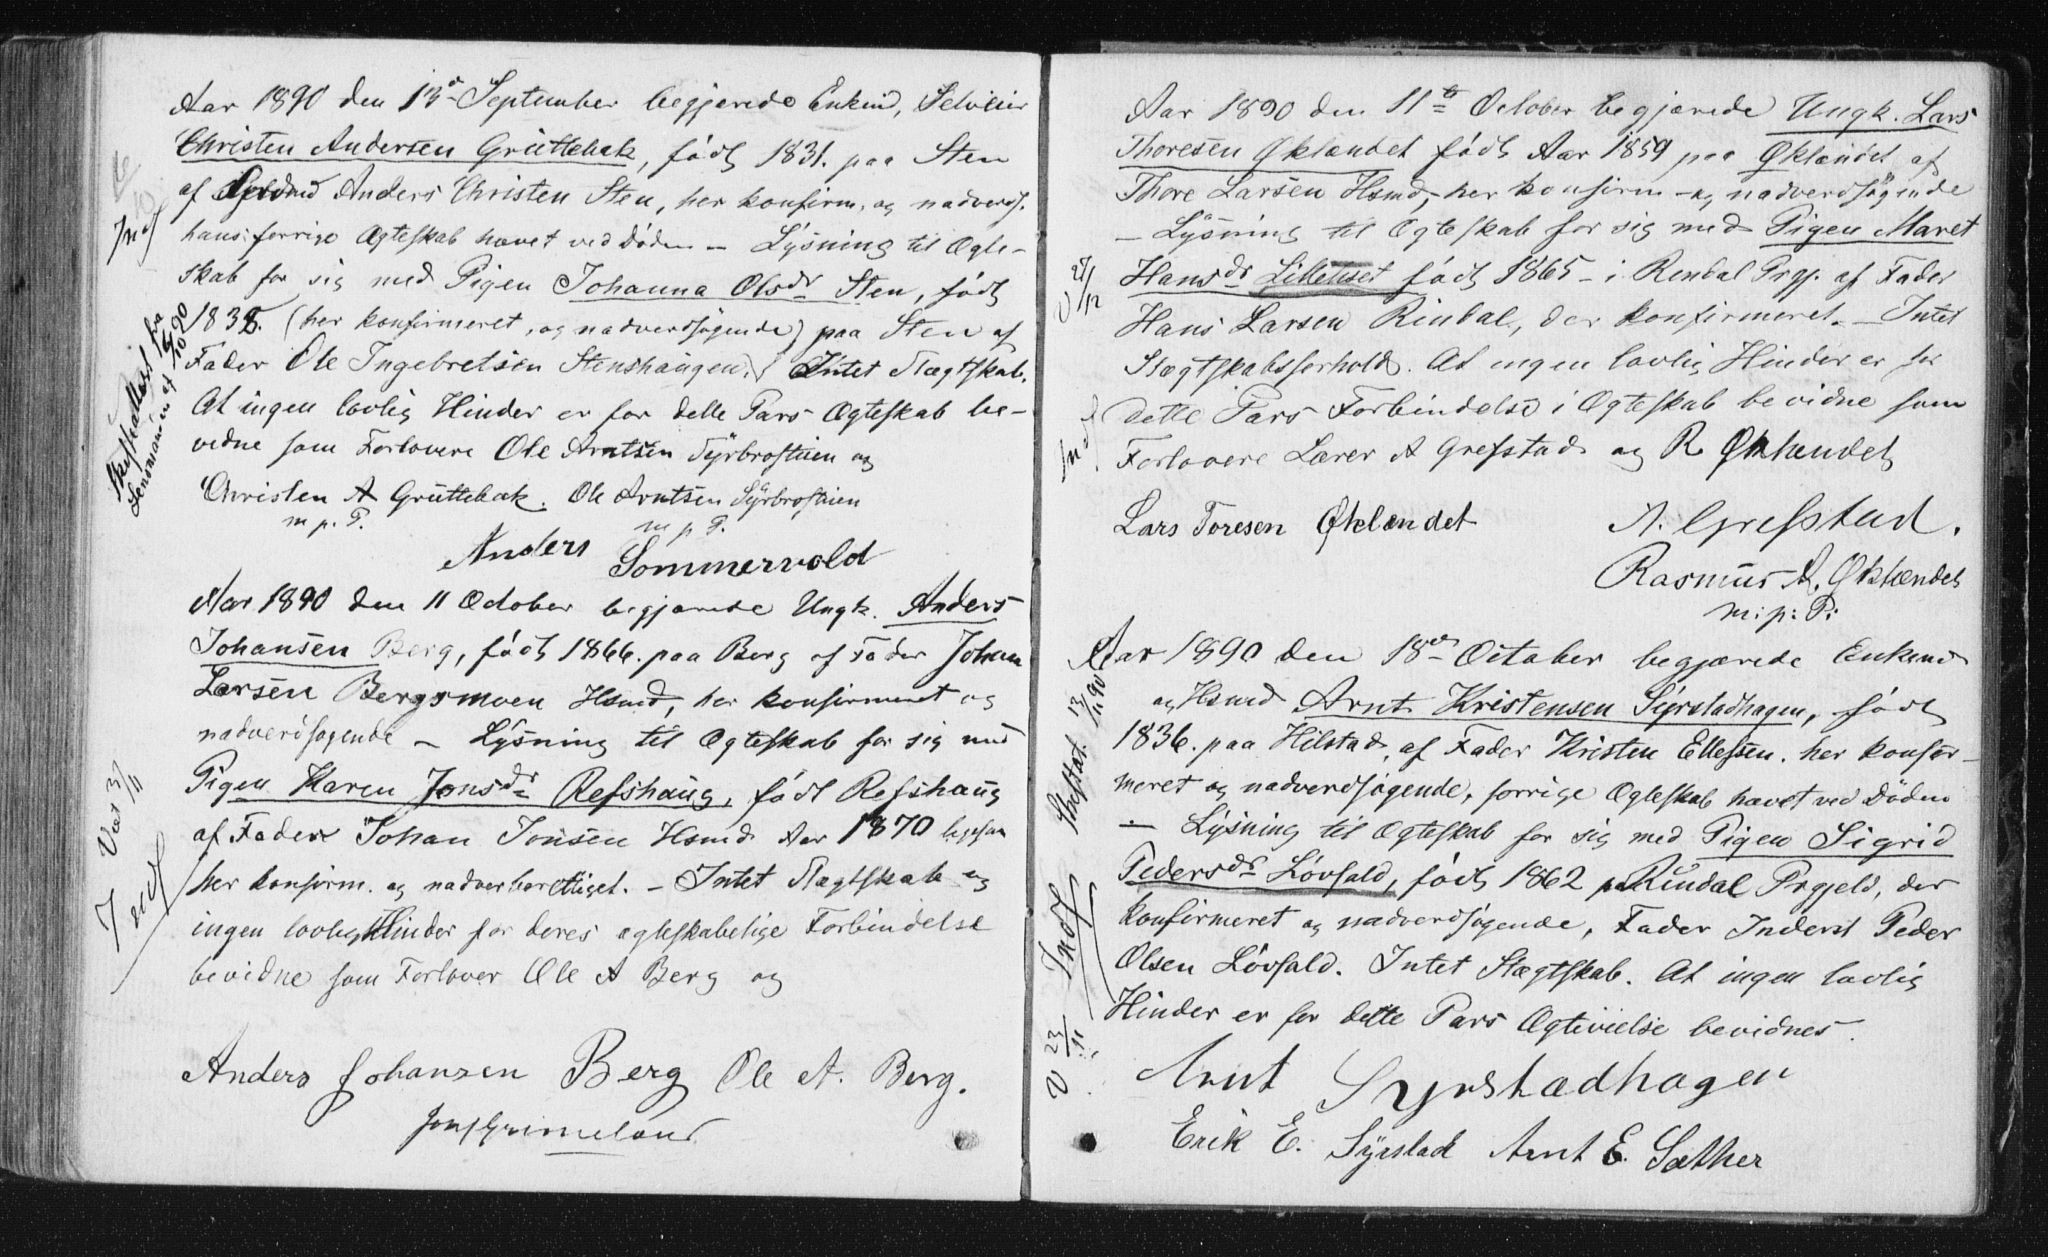 Aar 1890 den 13de September begjærede Enkmd, Selveier
Christen Andersen Gruttebak, født 1831. paa Sten
af Anders Christen Sten, her konfirm, og nadverds.
hans forrige Ægteskab hævet ved Døden – Lysning til Ægte-
skab for sig med Pigen Johanna Olsdr Sten, født
1835. (her konfirmeret, og nadverdsøgende) paa Sten af
Fader Ole Ingebretsen Stenshaugen. Intet Slægtskab.
At ingen lovlig Hinder er for dette Pars Ægteskab be-
vidne som Forlovere Ole Arntsen Syrbrøstuen og
Christen A Gruttebak. Ole Arntsen Syrbrøstuen
m p. P. m p P.
Anders Sommervold
Skifteattest fra
Lensmanden af 6/10 90
Indf
Aar 1890 den 11 October begjærede Ungk. Anders
Johansen Berg, født 1866. paa Berg af Fader Johan
Larsen Bergsmoen Hsmd, her konfirmeret og
nadverdsøgende – Lysning til Ægteskab for sig med
Pigen Karen Jonsdr Refshaug, født Refshaug
af Fader Johan Jonsen Hsmd Aar 1870
her konfirm. og nadverberettiget. – Intet Slægtskab og
ingen lovlig Hinder for deres ægteskabelige Forbindelse
bevidne som Forlover Ole A Berg og
Viet 3/11
Indf
Anders Johansen Berg Ole A. Berg.
Jons Grimeland
Aar 1890 den 11te October begjærede Ungk. Lars
Thoresen Øklandet født Aar 1859 paa Øklandet af
Thore Larsen Hsmd, her konfirm – og nadverdsøgende
– Lysning til Ægteskab for sig med Pigen Maret
Hansdr Lilletuset født 1865 – i Rindal Prgj. af Fader
Hans Larsen Rindal, der konfirmeret. – Intet
Slægtskabsforhold. At ingen lovlig Hinder er for
dette Pars Forbindelse i Ægteskab bevidne som
Forlovere Lærer A Grefstad og R Øklændet
V 27/12
Indf
Lars Toresen Øklændet A. Grefstad.
Rasmus A. Øklændet
m: p: P:
Aar 1890 den 18de October begjærede Enkemd
og Hsmd Arnt Kristensen Syrstadhagen, født
1836. paa Hilstad, af Fader Kristen Ellefsen. her konfir-
meret og nadverdsøgende, forrige Ægteskab hævet ved Døden
– Lysning til Ægteskab for sig med Pigen Sigrid
Pedersdr Løvfald, født 1862 paa Rindal Prgjeld, der
konfirmeret og nadverdsøgende, Fader Inderst Peder
Olsen Løvfald. Intet Slægtskab. At ingen lovlig
Hinder er for dette Pars Ægtevielse bevidnes.
Skiftat. 13/11 90
Indf
V 23/11
Arnt Syrstadhagen
Erik E. Syrstad Arnt E. Sæther